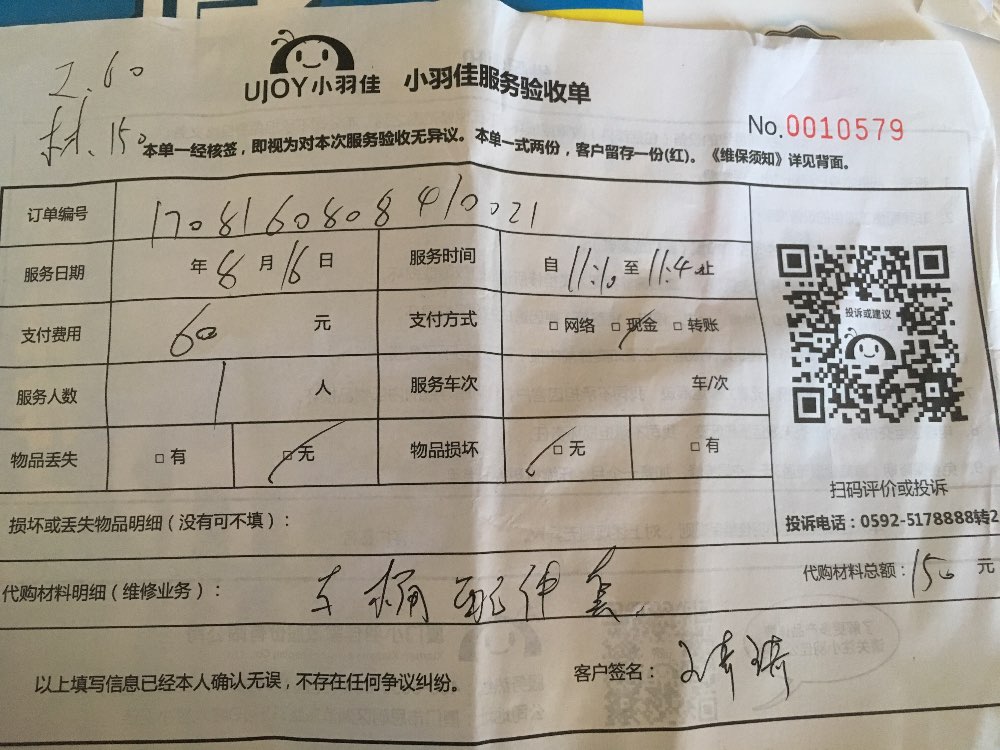 2.60
材.150
UJOY小羽佳 小羽佳服务验收单
No.0010579
本单一经核签，即视为对本次服务验收无异议。本单一式两份，客户留存一份(红)。《维保须知》详见背面。
订单编号 1708160808410021
服务日期 年 8 月 16 日 服务时间 自 11:10 至 11:4 止
支付费用 60 元 支付方式 □ 网络 □ 现金 □ 转账
投诉或建议
服务人数 1 人 服务车次 车/次
物品丢失 □ 有 □ 无 物品损坏 □ 无 □ 有
扫码评价或投诉
投诉电话：0592-5178888转2
损坏或丢失物品明细（没有可不填）：
代购材料明细（维修业务）： 桶配件套. 代购材料总额：150 元
以上填写信息已经本人确认无误，不存在任何争议纠纷。 客户签名：